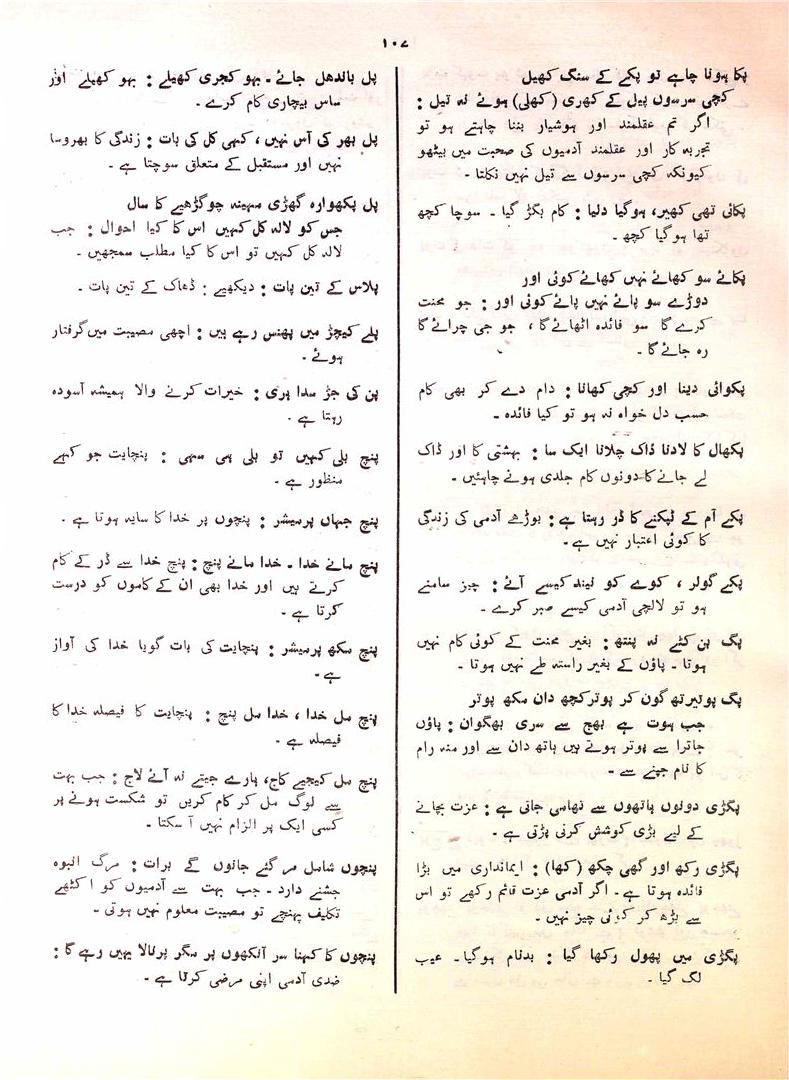 ۱۰۷
پکا ہونا چاہے تو پکے کے سنگ کھیل
کچی سرسوں پیل کے کھری (کھلی) ہوئے نہ تیل :
اگر تم عقلمند اور ہوشیار بننا چاہتے ہو تو
تجربہ کار اور عقلمند آدمیوں کی صحبت میں بیٹھو
کیونکہ کچی سرسوں سے تیل نہیں نکلتا ۔
پکائی تھی کھیر، ہوگیا دلیا : کام بگڑ گیا ۔ سوچا کچھ
تھا ہوگیا کچھ ۔
پکائے سو کھائے نہیں کھائے کوئی اور
دوڑے سو پائے نہیں پائے کوئی اور : جو محنت
کرے گا سو فائدہ اٹھائے گا ، جو جی چرائے گا
رہ جائے گا ۔
پکوائی دینا اور کچی کھانا : دام دے کر بھی کام
حسب دل خواہ نہ ہو تو کیا فائدہ ۔
پکھال کا لادنا ڈاک چلانا ایک سا : بہشتی کا اور ڈاک
لے جانے کا دونوں کام جلدی ہونے چاہئیں ۔
پکے آم کے ٹپکنے کا ڈر رہتا ہے : بوڑھے آدمی کی زندگی
کا کوئی اعتبار نہیں ہے ۔
پکے گولر ، کوے کو نیند کیسے آئے : چیز سامنے
ہو تو لالچی آدمی کیسے صبر کرے ۔
پگ بن کٹے نہ پنتھ : بغیر محنت کے کوئی کام نہیں
ہوتا ۔ پاؤں کے بغیر راستہ طے نہیں ہوتا ۔
پگ پوتیرتھ گون کر پوتر کچھ دان مکھ پوتر
جب ہوت ہے بھج سے سری بھگوان : پاؤں
جاترا سے پوتر ہوتے ہیں ہاتھ دان سے اور منہ رام
کا نام جپنے سے ۔
پگڑی دونوں ہاتھوں سے تھامی جاتی ہے : عزت بچانے
کے لیے بڑی کوشش کرنی پڑتی ہے ۔
پگڑی رکھ اور گھی چکھ (کھا) : ایمانداری میں بڑا
فائدہ ہوتا ہے ۔ اگر آدمی عزت قائم رکھے تو اس
سے بڑھ کر کوئی چیز نہیں ۔
پگڑی میں پھول رکھا گیا : بدنام ہوگیا ۔ عیب
لگ گیا ۔
پل باندھل جائے ۔ بہو کجری کھیلے : بہو کھیلے اور
ساس بیچاری کام کرے ۔
پل بھر کی آس نہیں ، کہی کل کی بات : زندگی کا بھروسا
نہیں اور مستقبل کے متعلق سوچتا ہے ۔
پل پکھوارہ گھڑی مہینہ چوگڑھیے کا سال
جس کو لالہ کل کہیں اس کا کیا احوال : جب
لالہ کل کہیں تو اس کا کیا مطلب سمجھیں ۔
پلاس کے تین پات : دیکھیے : ڈھاک کے تین پات ۔
پلے کیچڑ میں پھنس رہے ہیں : اچھی مصیبت میں گرفتار
ہوئے ۔
پن کی جڑ سدا ہری : خیرات کرنے والا ہمیشہ آسودہ
رہتا ہے ۔
پنچ بلی کہیں تو بلی ہی سہی : پنچایت جو کہے
منظور ہے ۔
پنچ جہاں پرمیشر : پنچوں پر خدا کا سایہ ہوتا ہے ۔
پنچ مانے خدا ۔ خدا مانے پنچ : پنچ خدا سے ڈر کے کام
کرتے ہیں اور خدا بھی ان کے کاموں کو درست
کرتا ہے ۔
پنچ سکھ پرمیشر : پنچایت کی بات گویا خدا کی آواز
ہے ۔
پنچ مل خدا ، خدا مل پنچ : پنچایت کا فیصلہ خدا کا
فیصلہ ہے ۔
پنچ مل کیجیے کاج، ہارے جیتے نہ آئے لاج : جب بہت
سے لوگ مل کر کام کریں تو شکست ہونے پر
کسی ایک پر الزام نہیں آ سکتا ۔
پنچوں شامل مر گئے جانوں گے برات : مرگ انبوہ
جشنے دارد ۔ جب بہت سے آدمیوں کو اکٹھے
تکلیف پہنچے تو مصیبت معلوم نہیں ہوتی ۔
پنچوں کا کہنا سر آنکھوں پر مگر پرنالا یہیں رہے گا :
ضدی آدمی اپنی مرضی کرتا ہے ۔